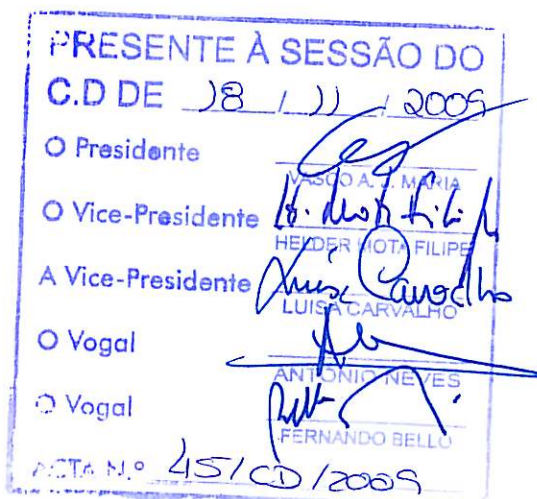 PRESENTE À SESSÃO DO
C.D DE 18 / 11 / 2009
O Presidente
VASCO A. J. MARIA
O Vice-Presidente H. Mota Filipe
HELDER MOTA FILIPE
A Vice-Presidente Luísa Carvalho
LUISA CARVALHO
O Vogal
ANTÓNIO NEVES
O Vogal
FERNANDO BELLO
ACTA N.º 45/CD/2009